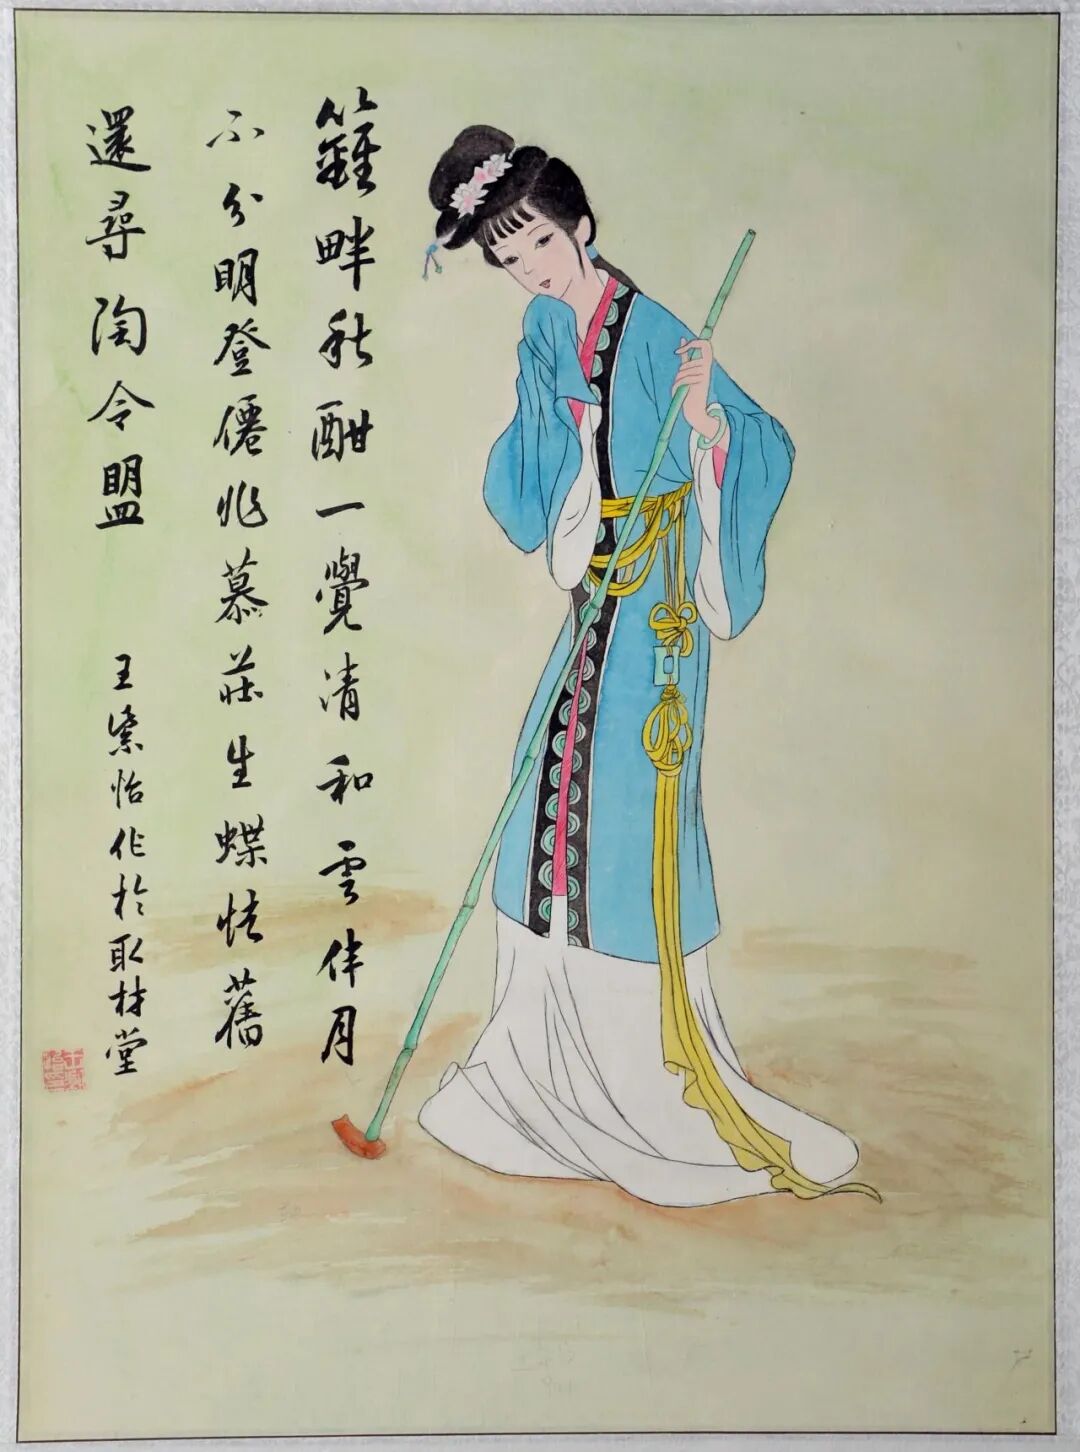 籬畔秋酣一覺清和雲伴月
不分明登僊非慕莊生蝶憶舊
還尋陶令盟
王紫怡作於取材堂